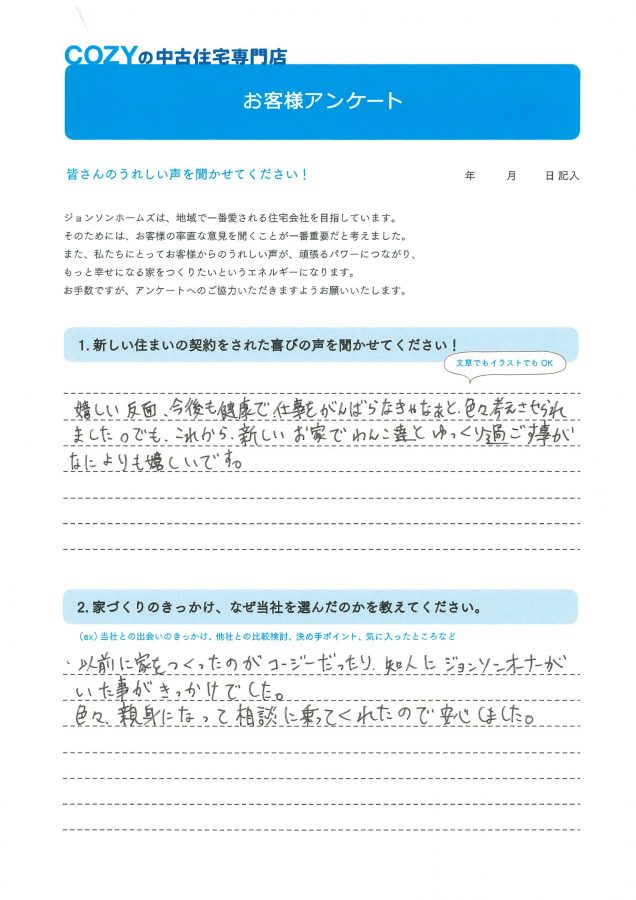 COZYの中古住宅専門店
お客様アンケート
皆さんのうれしい声を聞かせてください！
年 月 日記入
ジョンソンホームズは、地域で一番愛される住宅会社を目指しています。
そのためには、お客様の率直な意見を聞くことが一番重要だと考えました。
また、私たちにとってお客様からのうれしい声が、頑張るパワーにつながり、
もっと幸せになる家をつくりたいというエネルギーになります。
お手数ですが、アンケートへのご協力いただきますようお願いいたします。
1. 新しい住まいの契約をされた喜びの声を聞かせてください！
文章でもイラストでも OK
嬉しい反面、今後も健康で仕事をがんばらなきゃなぁと、色々考えさせられ
ました。でも、これから、新しいお家でわんこ達とゆっくり過ごす事が
なによりも嬉しいです。
2. 家づくりのきっかけ、なぜ当社を選んだのかを教えてください。
（ex）当社との出会いのきっかけ、他社との比較検討、決め手ポイント、気に入ったところなど
・以前に家をつくったのがコージーだったり、知人にジョンソンオーナーが
いた事がきっかけでした。
色々、親身になって相談に乗ってくれたので安心しました。